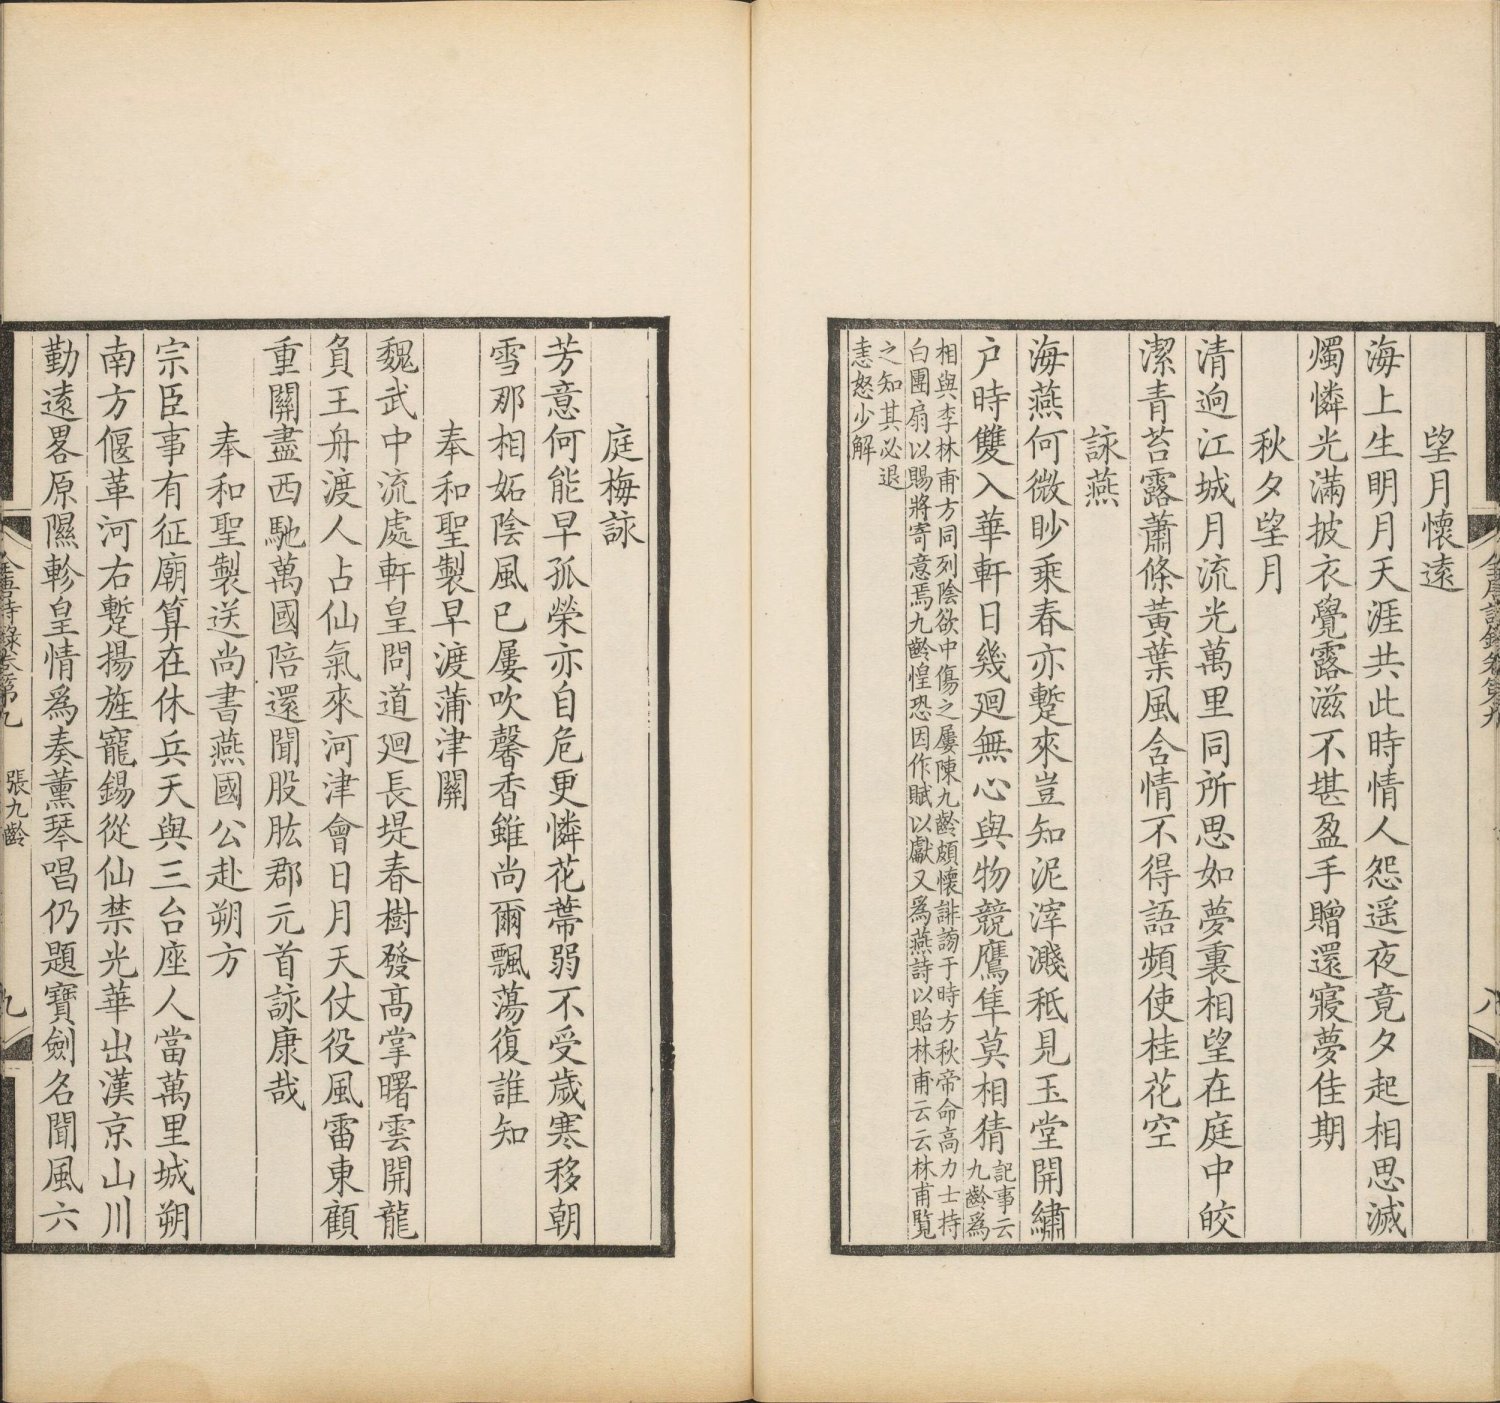 望月懷遠
海上生明月天涯共此時情人怨遥夜竟夕起相思滅
燭憐光滿披衣覺露滋不堪盈手贈還寢夢佳期
秋夕望月
清逈江城月流光萬里同所思如夢裏相望在庭中皎
潔青苔露蕭條黃葉風含情不得語頻使桂花空
詠燕
海燕何微眇乘春亦蹔來豈知泥滓濺秪見玉堂開繡
户時雙入華軒日幾廻無心與物競鷹隼莫相猜
記事云
九齡爲
相與李林甫方同列陰欲中傷之屢陳九齡頗懷誹謗于時方秋帝命高力士持
白團扇以賜將寄意焉九齡惶恐因作賦以獻又爲燕詩以貽林甫云云林甫覧
之知其必退
恚怒少解
全唐詩錄卷第九
八
庭梅詠
芳意何能早孤榮亦自危更憐花蔕弱不受歲寒移朝
雪那相妬陰風已屢吹馨香雖尚爾飄蕩復誰知
奉和聖製早渡蒲津關
魏武中流處軒皇問道廻長堤春樹發高掌曙雲開龍
負王舟渡人占仙氣來河津會日月天仗役風雷東顧
重關盡西馳萬國陪還聞股肱郡元首詠康哉
奉和聖製送尚書燕國公赴朔方
宗臣事有征廟算在休兵天與三台座人當萬里城朔
南方偃革河右蹔揚旌寵錫從仙禁光華出漢京山川
勤遠畧原隰軫皇情爲奏薰琴唱仍題寶劍名聞風六
全唐詩錄卷第九
張九齡
九